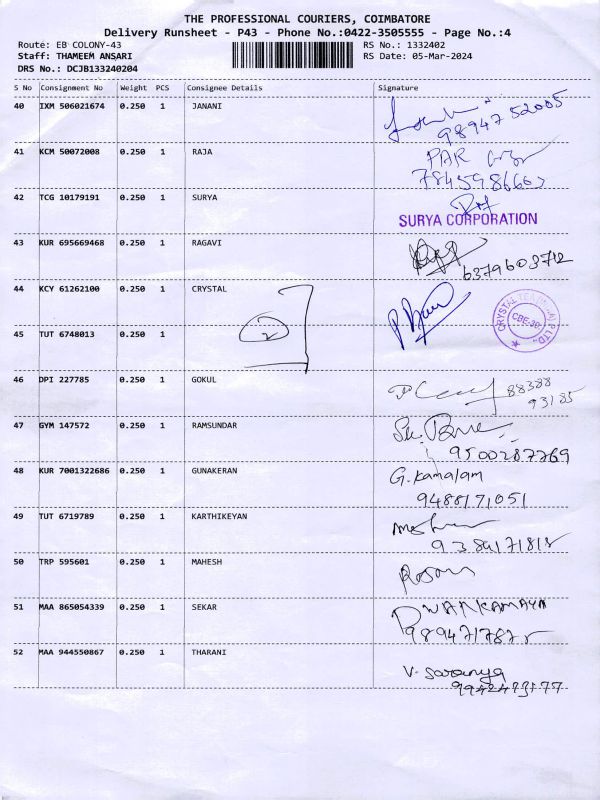 THE PROFESSIONAL COURIERS, COIMBATORE
Delivery Runsheet - P43 - Phone No.:0422-3505555 - Page No.:4
Route: EB COLONY-43 RS No.: 1332402
Staff: THAMEEM ANSARI RS Date: 05-Mar-2024
DRS No.: DCJB133240204
S No Consignment No Weight PCS Consignee Details Signature
40 IXM 506021674 0.250 1 JANANI
98947 52005
41 KCM 50072008 0.250 1 RAJA PAR
42 TCG 10179191 0.250 1 SURYA
SURYA CORPORATION
43 KUR 695669468 0.250 1 RAGAVI
6379603712
44 KCY 61262100 0.250 1 CRYSTAL
CBE-30
45 TUT 6748013 0.250 1 2
46 DPI 227785 0.250 1 GOKUL 88388
93185
47 GYM 147572 0.250 1 RAMSUNDAR
9500287769
48 KUR 7001322686 0.250 1 GUNAKERAN G. Kamalam
9488171051
49 TUT 6719789 0.250 1 KARTHIKEYAN
50 TRP 595601 0.250 1 MAHESH
51 MAA 865054339 0.250 1 SEKAR
52 MAA 944550867 0.250 1 THARANI
V. Saranya